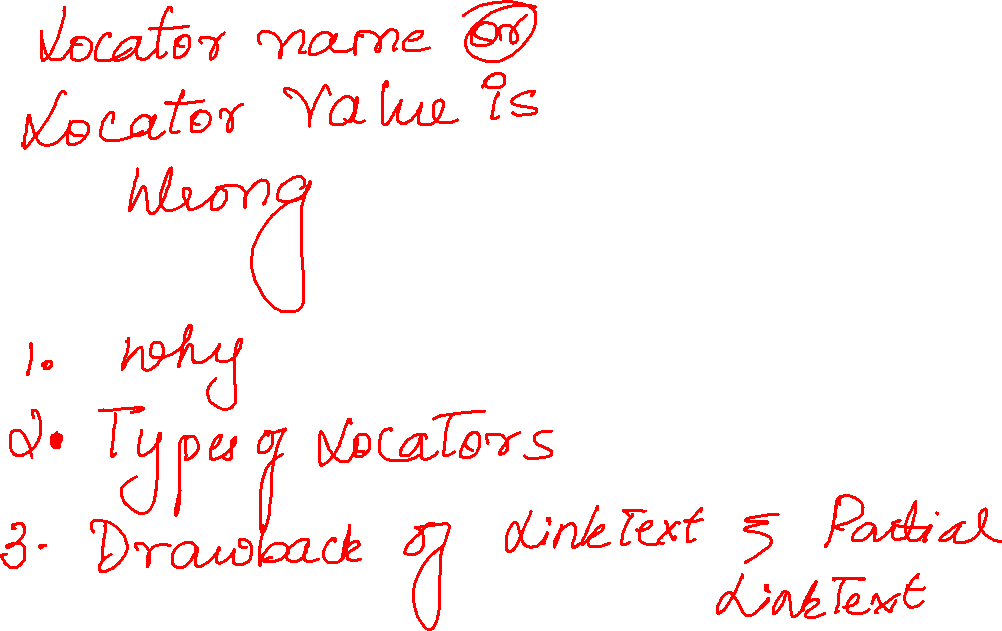 Locator name or
Locator Value is
Wrong
1. Why
2. Types of Locators
3. Drawback of LinkText & Partial
LinkText